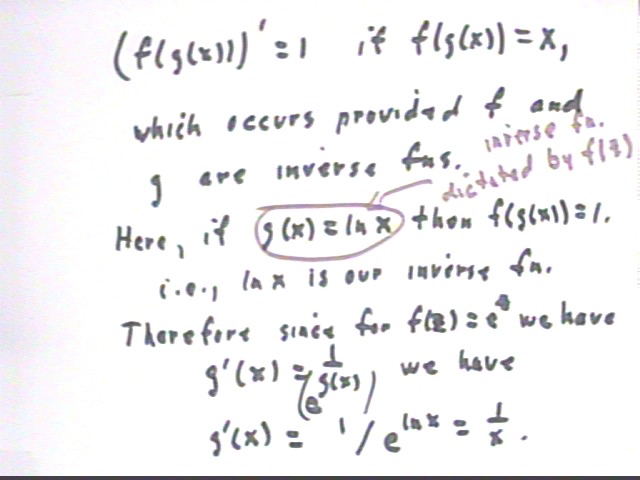 (f(g(x)))' = 1 if f(g(x)) = x,
which occurs provided f and
g are inverse fns.
inverse fn.
dictated by f(z)
Here, if g(x) = ln x then f(g(x)) = 1.
i.e., ln x is our inverse fn.
Therefore since for f(z) = e^z we have
g'(x) = 1/(e^g(x)) we have
g'(x) = 1/e^ln x = 1/x.